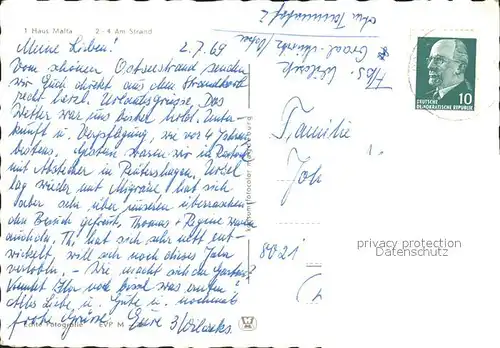 1 Haus Malta 2-4 Am Strand
Meine Lieben! 2.7.69
Vom schönen Ostseestrand senden
wir Euch direkt aus dem Strandkorb
recht herzl. Urlaubsgrüsse. Das
Wetter war uns bisher hold. Unter-
kunft u. Verpflegung, wie vor 4 Jahren
bestens. Gestern waren wir in Rostock
mit Abstecher in
lag wieder mit Migräne hat sich
aber sehr über unseren überraschen-
den Besuch gefreut, Thomas + Regine waren
auch da. Th. hat sich sehr nett ent-
wickelt, will sich noch dieses Jahr
verloben. - Wie macht sich der Garten?
Kommt Ihr
Alles Liebe u. Gute u. nochmals
frohe Grüsse Eure 3
Echte Fotografie EVP M
Graal-Müritz
DEUTSCHE
DEMOKRATISCHE REPUBLIK
10
Familie
Joh
8021
privacy protection
Datenschutz